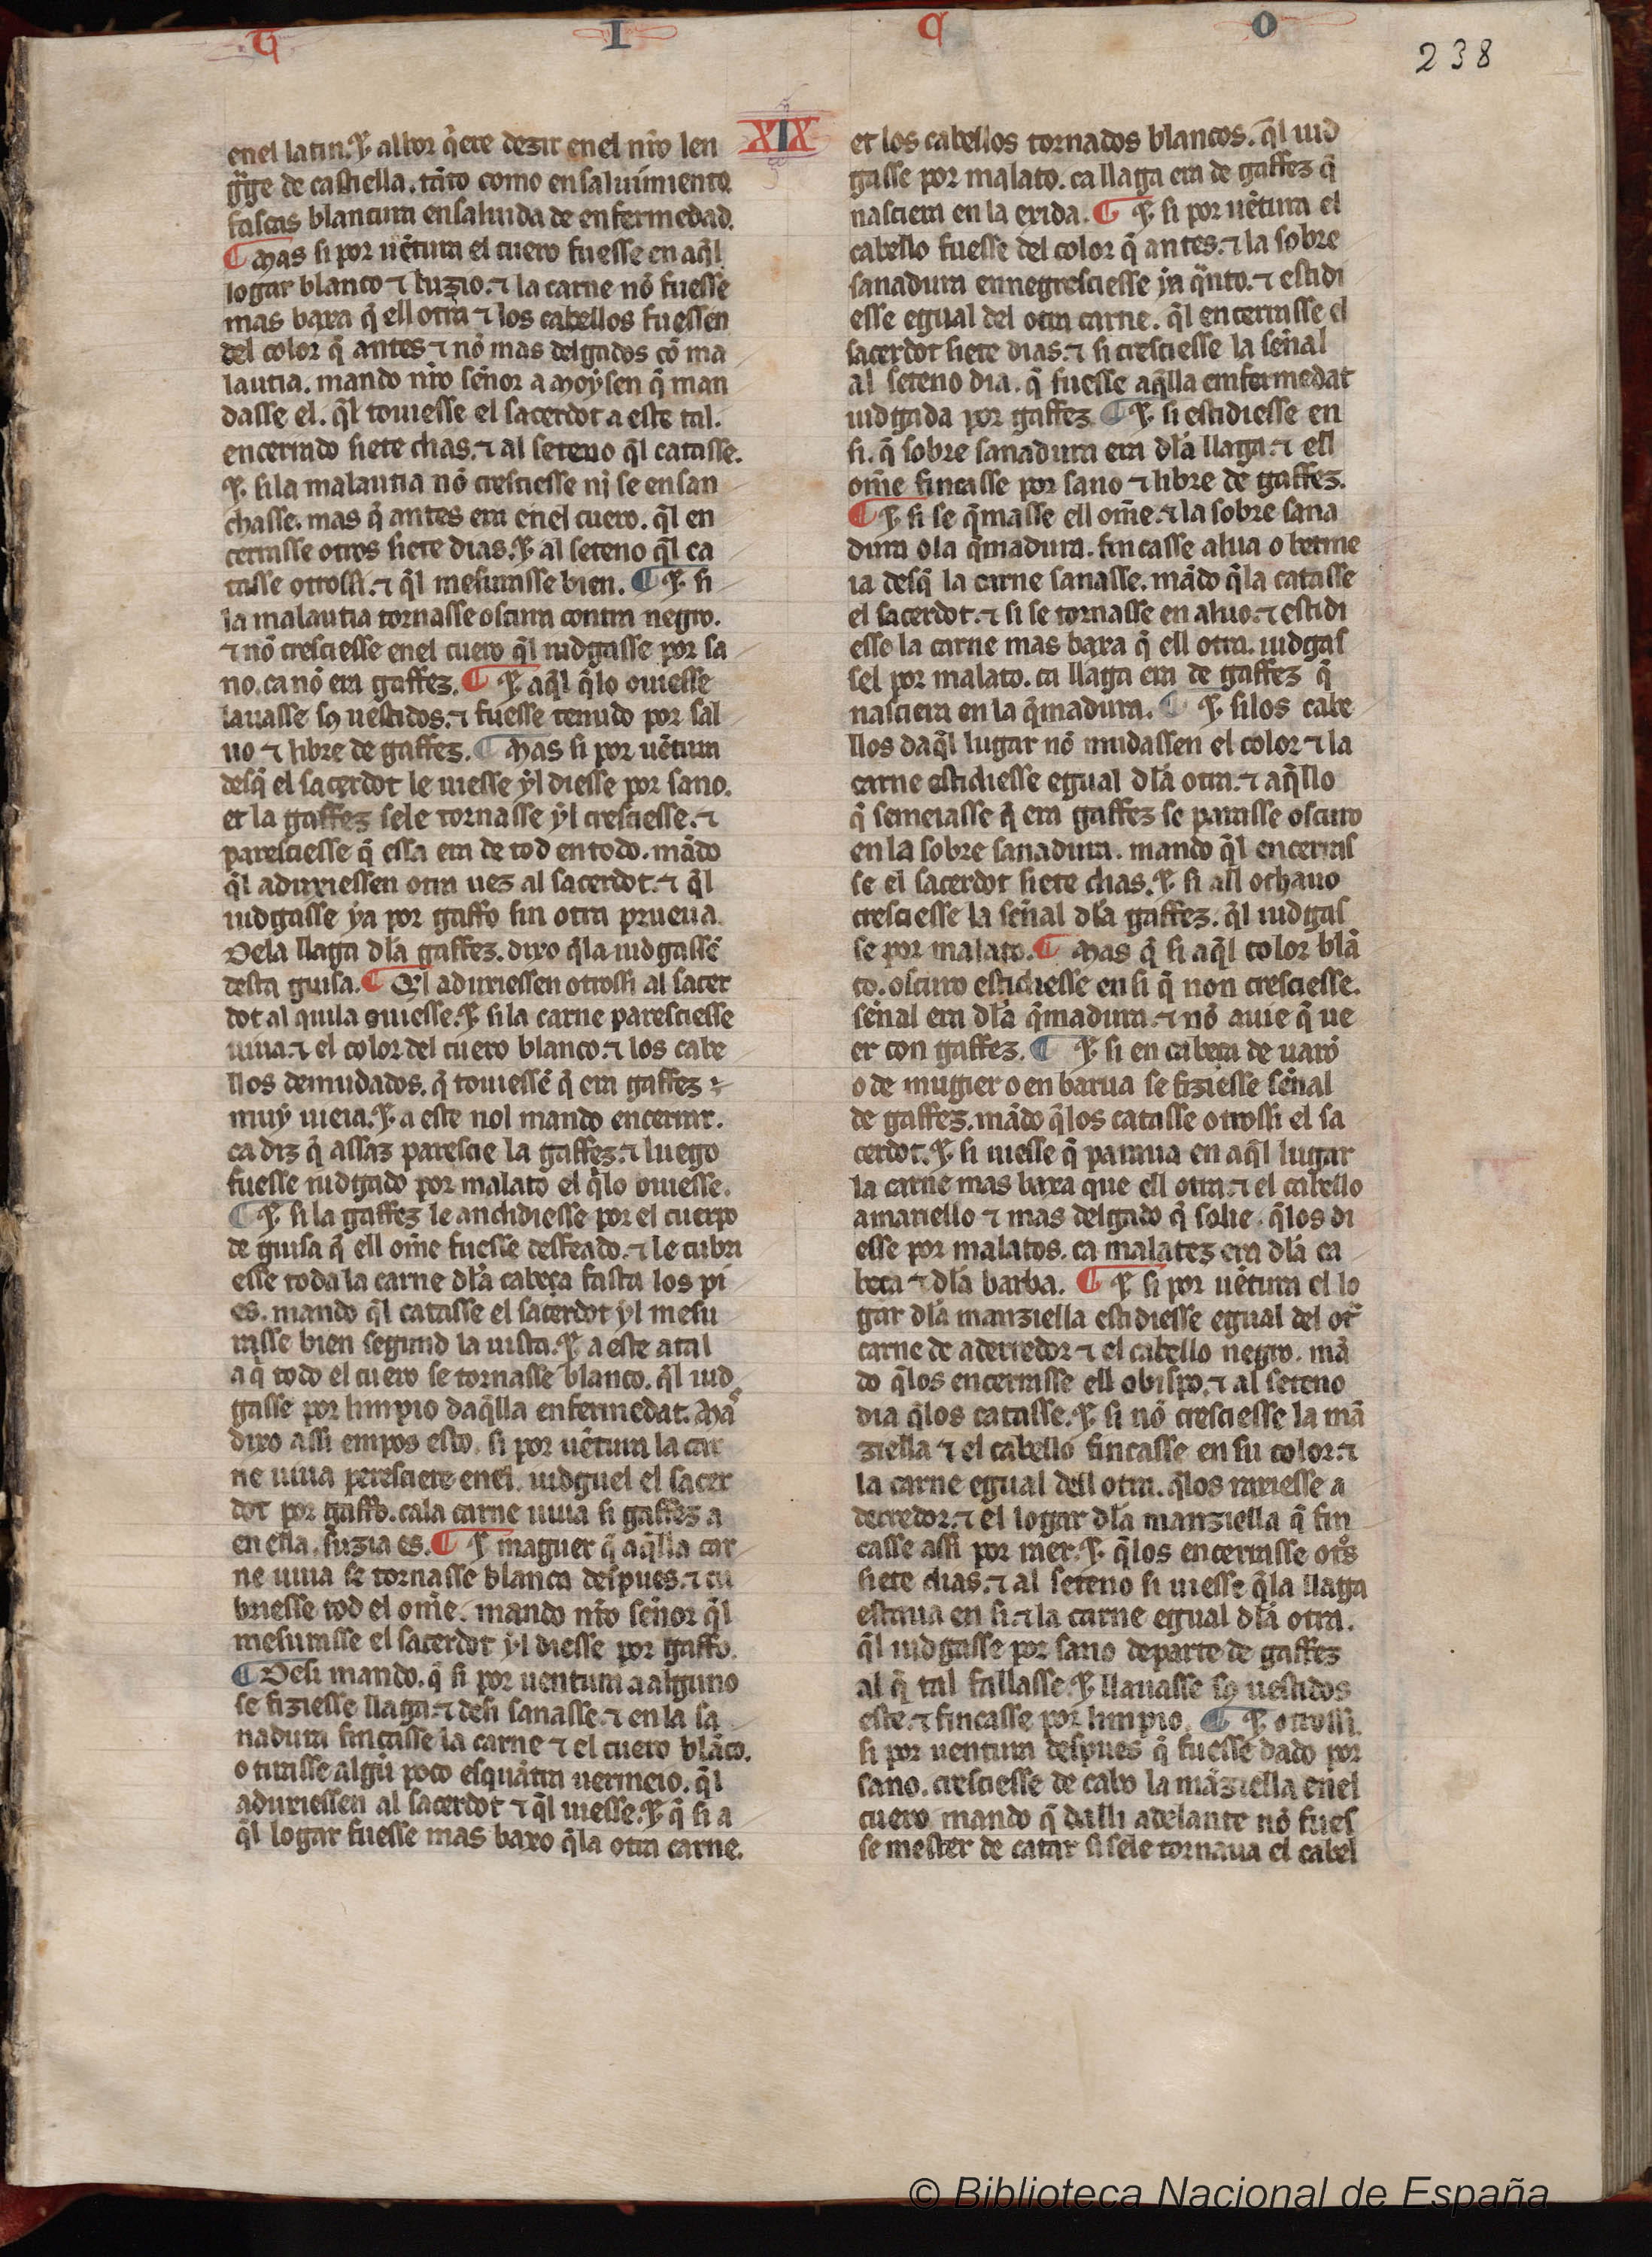 T I C O
238
XIX
enel latin. ⁊ aluor q̃ere dezir enel nr̃o len
gᷓge de castiella. tãto como ensaluimiento
fascas blancura ensaluida de enfermedad.
¶ Mas si por uẽtura el cuero fuesse en aq̃l
logar blanco ⁊ luzio. ⁊ la carne nõ fuesse
mas baxa q̃ ell otra ⁊ los cabellos fuessen
del color q̃ antes ⁊ nõ mas delgados cõ ma
lautia. mando nr̃o sen̄or a Moysen q̃ man
dasse el. q̃l touiesse el sacerdot a este tal.
encerrado siete dias. ⁊ al seteno q̃l catasse.
⁊ si la malautia nõ cresciesse ni se ensan
chasse. mas q̃ antes era enel cuero. q̃l en
cerrasse otros siete dias. ⁊ al seteno q̃l ca
tasse otrossi. ⁊ q̃l mesurasse bien. ¶ ⁊ si
la malautia tornasse oscura contra negro.
⁊ nõ cresciesse enel cuero q̃l iudgasse por sa
no. ca nõ era gaffez. ¶ ⁊ aq̃l q̃lo ouiesse
lauasse sꝯ uestidos. ⁊ fuesse tenudo por sal
uo ⁊ libre de gaffez. ¶ Mas si por uẽtura
desq̃ el sacerdot le uiesse ẏl diesse por sano.
et la gaffez sele tornasse ẏl cresciesse. ⁊
paresciesse q̃ essa era de tod en todo. mãdo
q̃l aduxiessen otra uez al sacerdot. ⁊ q̃l
iudgasse ẏa por gaffo sin otra prueua.
Dela llaga dl̃a gaffez. dixo q̃la iudgassẽ
desta guisa. ¶ Q̃l aduxiessen otrossi al sacer
dot al qui la ouiesse. ⁊ si la carne paresciesse
uiua. ⁊ el color del cuero blanco. ⁊ los cabe
llos demudados. q̃ touiessẽ q̃ era gaffez
muẏ uieia. ⁊ a este nol mando encerrar.
ca diz q̃ assaz paresce la gaffez. ⁊ luego
fuesse iudgado por malato el q̃lo ouiesse.
¶ ⁊ si la gaffez le anchidiesse por el cuerpo
de guisa q̃ ell om̃e fuesse desfeado. ⁊ le cubri
esse toda la carne dl̃a cabeça fasta los pi
es. mando q̃l catasse el sacerdot ẏl mesu
rasse bien segund la uista. ⁊ a este atal
a q̃ todo el cuero se tornasse blanco. q̃l iud
gasse por limpio daq̃lla enfermedat. Maˢ
dixo assi empos esto. si por uẽtura la car
ne uiua peresciere enel. iudguel el sacer
dot por gaffo. ca la carne uiua si gaffez a
en ella. suzia es. ¶ ⁊ maguer q̃ aq̃lla car
ne uiua se tornasse blanca despues. ⁊ cu
briesse tod el om̃e. mando nr̃o sen̄or q̃l
mesurasse el sacerdot ẏl diesse por gaffo.
¶ Desi mando. q̃ si por uentura a alguno
se fiziesse llaga. ⁊ desi sanasse. ⁊ en la sa
nadura fincasse la carne ⁊ el cuero blãco.
o tirasse algũ poco esquãtra uermeio. q̃l
aduxiessen al sacerdot ⁊ q̃l uiesse. ⁊ q̃ si a
q̃l logar fuesse mas baxo q̃la otra carne.
et los cabellos tornados blancos. q̃l iud
gasse por malato. ca llaga era de gaffez q̃
nasciera en la erida. ¶ ⁊ si por uẽtura el
cabello fuesse del color q̃ antes. ⁊ la sobre
sanadura ennegresciesse ẏa q̃nto. ⁊ estidi
esse egual del otra carne. q̃l encerrasse el
sacerdot siete dias. ⁊ si cresciesse la sen̄al
al seteno dia. q̃ fuesse aq̃lla emfermedat
iudgada por gaffez ¶ ⁊ si estidiesse en
si. q̃ sobre sanadura era dl̃a llaga. ⁊ ell
om̃e fincasse por sano ⁊ libre de gaffez.
¶ ⁊ si se q̃masse ell om̃e. ⁊ la sobre sana
dura o la q̃madura. fincasse alua o berme
ia desq̃ la carne sanasse. mãdo q̃la catasse
el sacerdot. ⁊ si se tornasse en aluo. ⁊ estidi
esse la carne mas baxa q̃ ell otra. iudgas
sel por malato. ca llaga era de gaffez q̃
nasciera en la q̃madura. ¶ ⁊ si los cabe
llos daq̃l lugar nõ mudassen el color ⁊ la
carne estidiesse egual dl̃a otra. ⁊ aq̃llo
q̃ semeiasse q̃ era gaffez se parasse oscuro
en la sobre sanadura. mando q̃l encerras
se el sacerdot siete dias. ⁊ si all ochauo
cresciesse la sen̄al dl̃a gaffez. q̃l iudgas
se por malato. ¶ Mas q̃ si aq̃l color blã
co. oscuro estidiesse en si q̃ non cresciesse.
sen̄al era dl̃a q̃madura. ⁊ nõ auie q̃ ue
er con gaffez. ¶ ⁊ si en cabeça de uarõ
o de mugier o en barua se fiziesse sen̄al
de gaffez. mãdo q̃los catasse otrossi el sa
cerdot. ⁊ si uiesse q̃ paraua en aq̃l lugar
la carne mas baxa que ell otra. ⁊ el cabello
amariello ⁊ mas delgado q̃ solie. q̃los di
esse por malatos. ca malatez era dl̃a ca
beça ⁊ dl̃a barba. ¶ ⁊ si por uẽtura el lo
gar dl̃a manziella estidiesse egual del otᷓ
carne de aderredor ⁊ el cabello negro. mã
do q̃los encerrasse ell obispo. ⁊ al seteno
dia q̃los catasse. ⁊ si nõ cresciesse la mã
ziella ⁊ el cabello fincasse en su color. ⁊
la carne egual dell otra. q̃los raxiesse a
derredor. ⁊ el logar dl̃a manziella q̃ fin
casse assi por raer. ⁊ q̃los encerrasse otᵒs
siete dias. ⁊ al seteno si uiesse q̃la llaga
estaua en si. ⁊ la carne egual dl̃a otra.
q̃l iudgasse por sano departe de gaffez
al q̃ tal fallasse. ⁊ llauasse sꝯ uestidos
este. ⁊ fincasse por limpio. ¶ ⁊ otrossi.
si por uentura despues q̃ fuesse dado por
sano. cresciesse de cabo la mãziella enel
cuero mando q̃ dalli adelante nõ fues
se mester de catar si sele tornaua el cabel
© Biblioteca Nacional de España